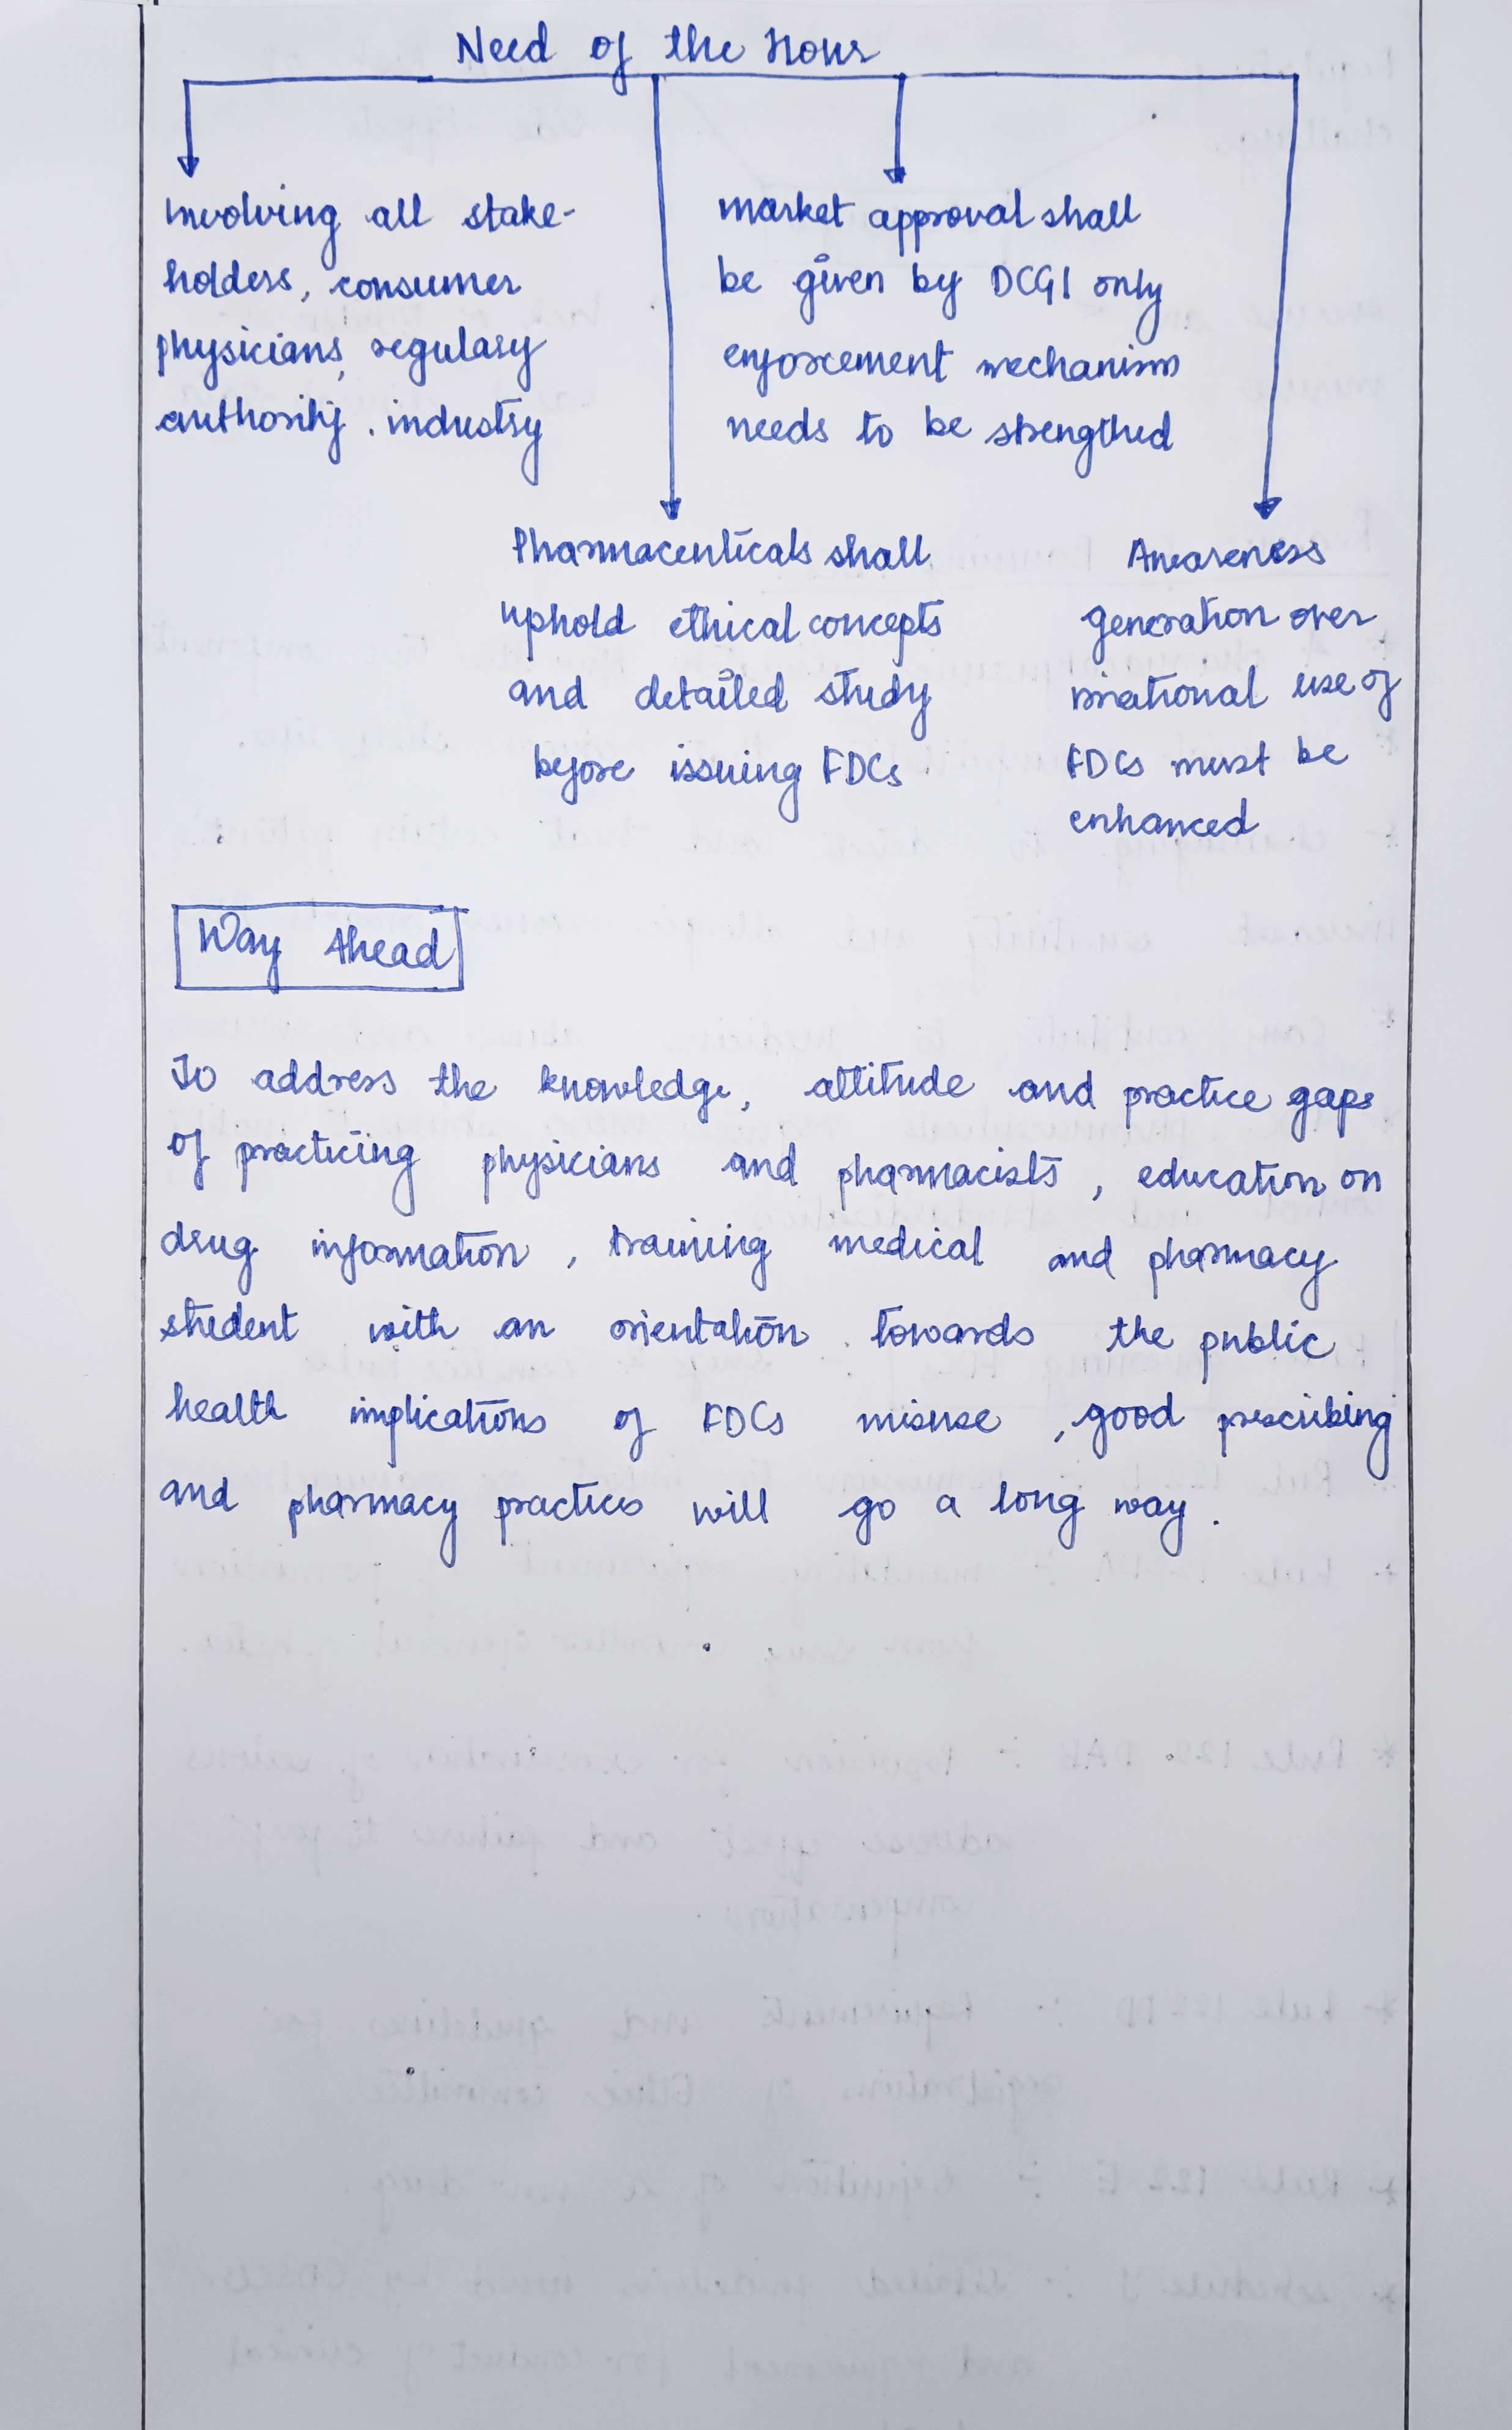 Need of the Hour
Involving all stake-
holders, consumer
physicians, regulary
authority, industry
market approval shall
be given by DCGI only
enforcement mechanism
needs to be strengthed
Pharmaceuticals shall
uphold ethical concepts
and detailed study
before issuing FDCs
Awareness
generation over
irrational use of
FDCs must be
enhanced
Way Ahead
To address the knowledge, attitude and practice gaps
of practicing physicians and pharmacists, education on
drug information, training medical and pharmacy
student with an orientation towards the public
health implications of FDCs misuse, good prescribing
and pharmacy practices will go a long way.